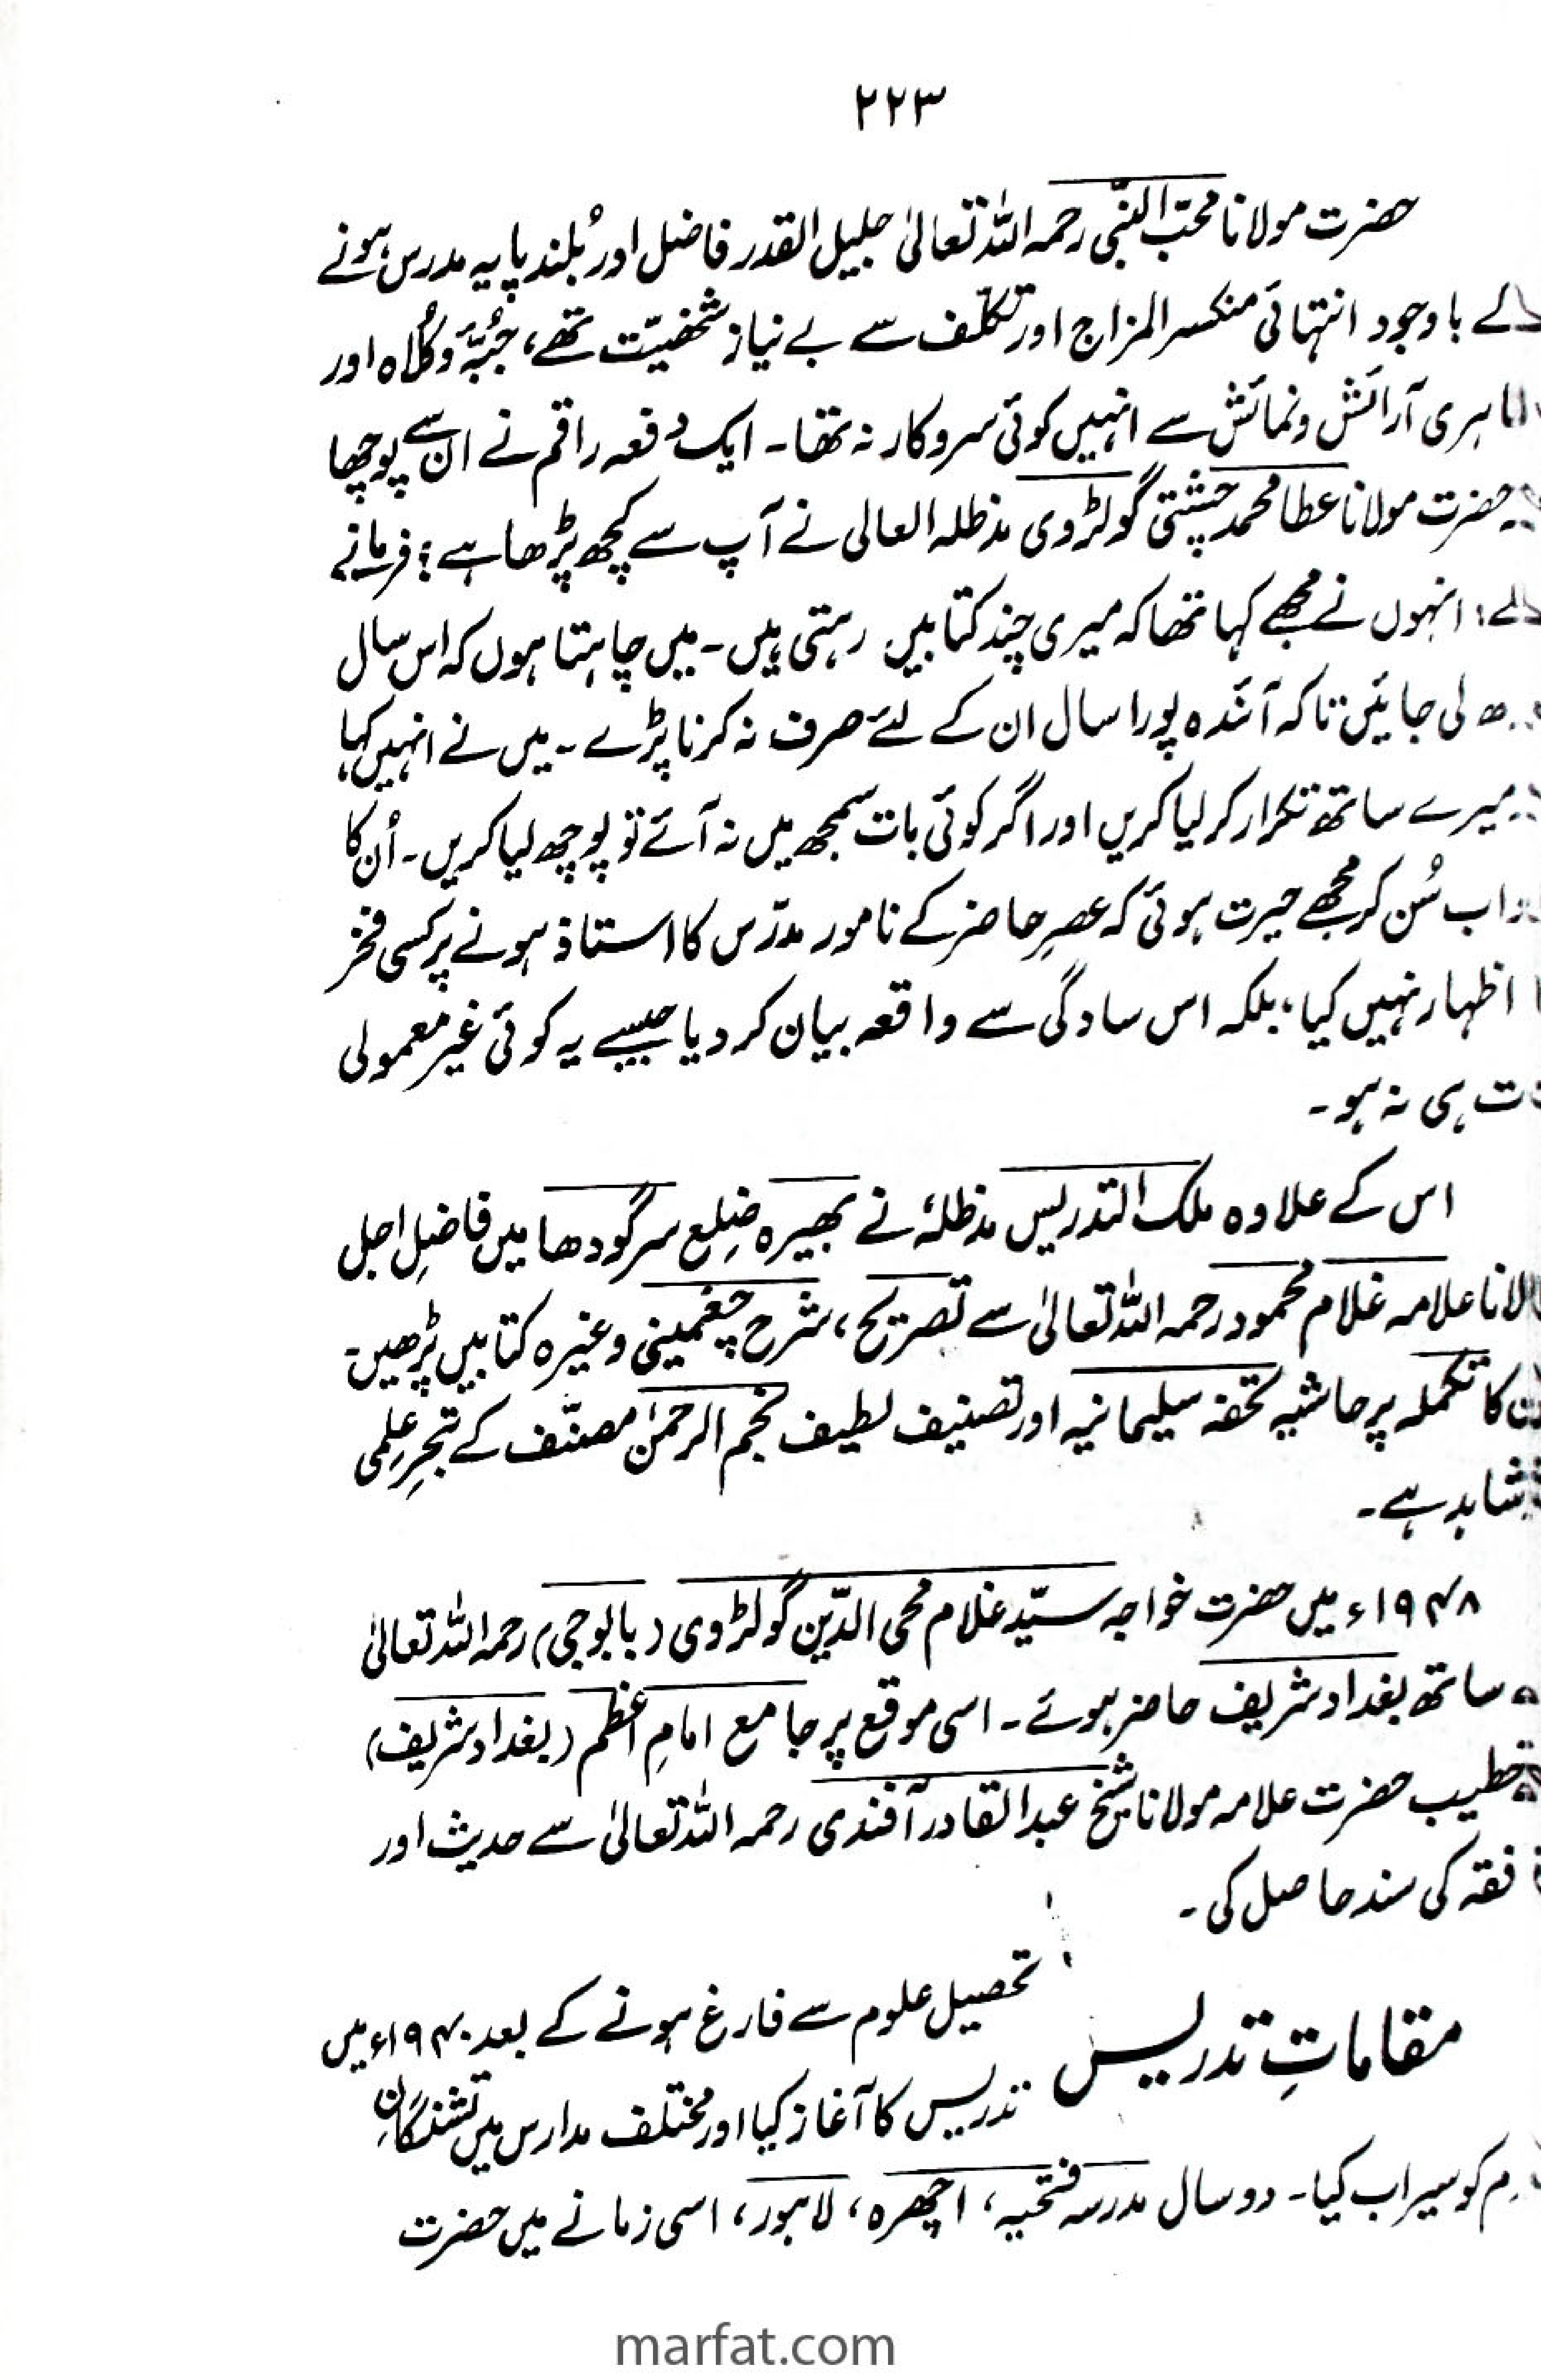 ۲۲۳
حضرت مولانا محبّ النّبی رحمہ اللہ تعالیٰ جلیل القدر فاضل اور بُلند پایہ مدرس ہونے
کے باوجود انتہائی منکسر المزاج اور تکلّف سے بے نیاز شخصیّت تھے، جُبّہ و کُلاہ اور
آرائش و نمائش سے انہیں کوئی سروکار نہ تھا۔ ایک دفعہ راقم نے ان سے پوچھا
حضرت مولانا عطا محمد چشتی گولڑوی مدظلہ العالی نے آپ سے کچھ پڑھا ہے؟ فرمانے
لگے: انہوں نے مجھے کہا تھا کہ میری چند کتابیں رہتی ہیں۔ میں چاہتا ہوں کہ اس سال
لی جائیں تاکہ آئندہ پورا سال ان کے لئے صرف نہ کرنا پڑے۔ میں نے انہیں کہا
میرے ساتھ تکرار کر لیا کریں اور اگر کوئی بات سمجھ میں نہ آئے تو پوچھ لیا کریں۔ اُن کا
سُن کر مجھے حیرت ہوئی کہ عصرِ حاضر کے نامور مدرّس کا استاذ ہونے پر کسی فخر
اظہار نہیں کیا، بلکہ اس سادگی سے واقعہ بیان کر دیا جیسے یہ کوئی غیر معمولی
ہی نہ ہو۔
اس کے علاوہ ملک التدریس مدظلہٗ نے بھیرہ ضِلع سرگودھا میں فاضلِ اجل
علامہ غلام محمود رحمہ اللہ تعالیٰ سے تصریح، شرح چغمینی وغیرہ کتابیں پڑھیں۔
کا تکملہ پر حاشیہ تحفہ سلیمانیہ اور تصنیف لطیف نجم الرحمٰن مصنّف کے تبحرِ علمی
شاہد ہے۔
۱۹۴۸ء میں حضرت خواجہ سیّد غلام محی الدّین گولڑوی (بابوجی) رحمہ اللہ تعالیٰ
ساتھ بغداد شریف حاضر ہوئے۔ اسی موقع پر جامع امامِ اعظم (بغداد شریف)
خطیب حضرت علامہ مولانا شیخ عبدالقادر آفندی رحمہ اللہ تعالیٰ سے حدیث اور
فقہ کی سند حاصل کی۔
مقاماتِ تدریس
تحصیل علوم سے فارغ ہونے کے بعد ۱۹۴۰ء میں
تدریس کا آغاز کیا اور مختلف مدارس میں تشنگانِ
کو سیراب کیا۔ دو سال مدرسہ فتحیہ، اچھرہ، لاہور، اسی زمانے میں حضرت
marfat.com